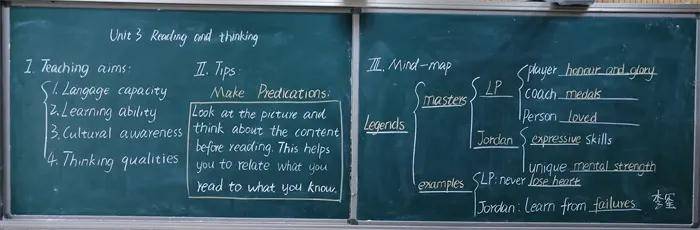 Unit 3 Reading and thinking
I. Teaching aims:
1. Langage capacity
2. Learning ability
3. Cultural awareness
4. Thinking qualities
II. Tips:
Make Predications:
Look at the picture and
think about the content
before reading. This helps
you to relate what you
read to what you know.
III. Mind-map
Legends
masters
LP
player honour and glory
coach medals
person loved
Jordan
expressive skills
unique mental strength
examples
LP: never lose heart
Jordan: Learn from failures